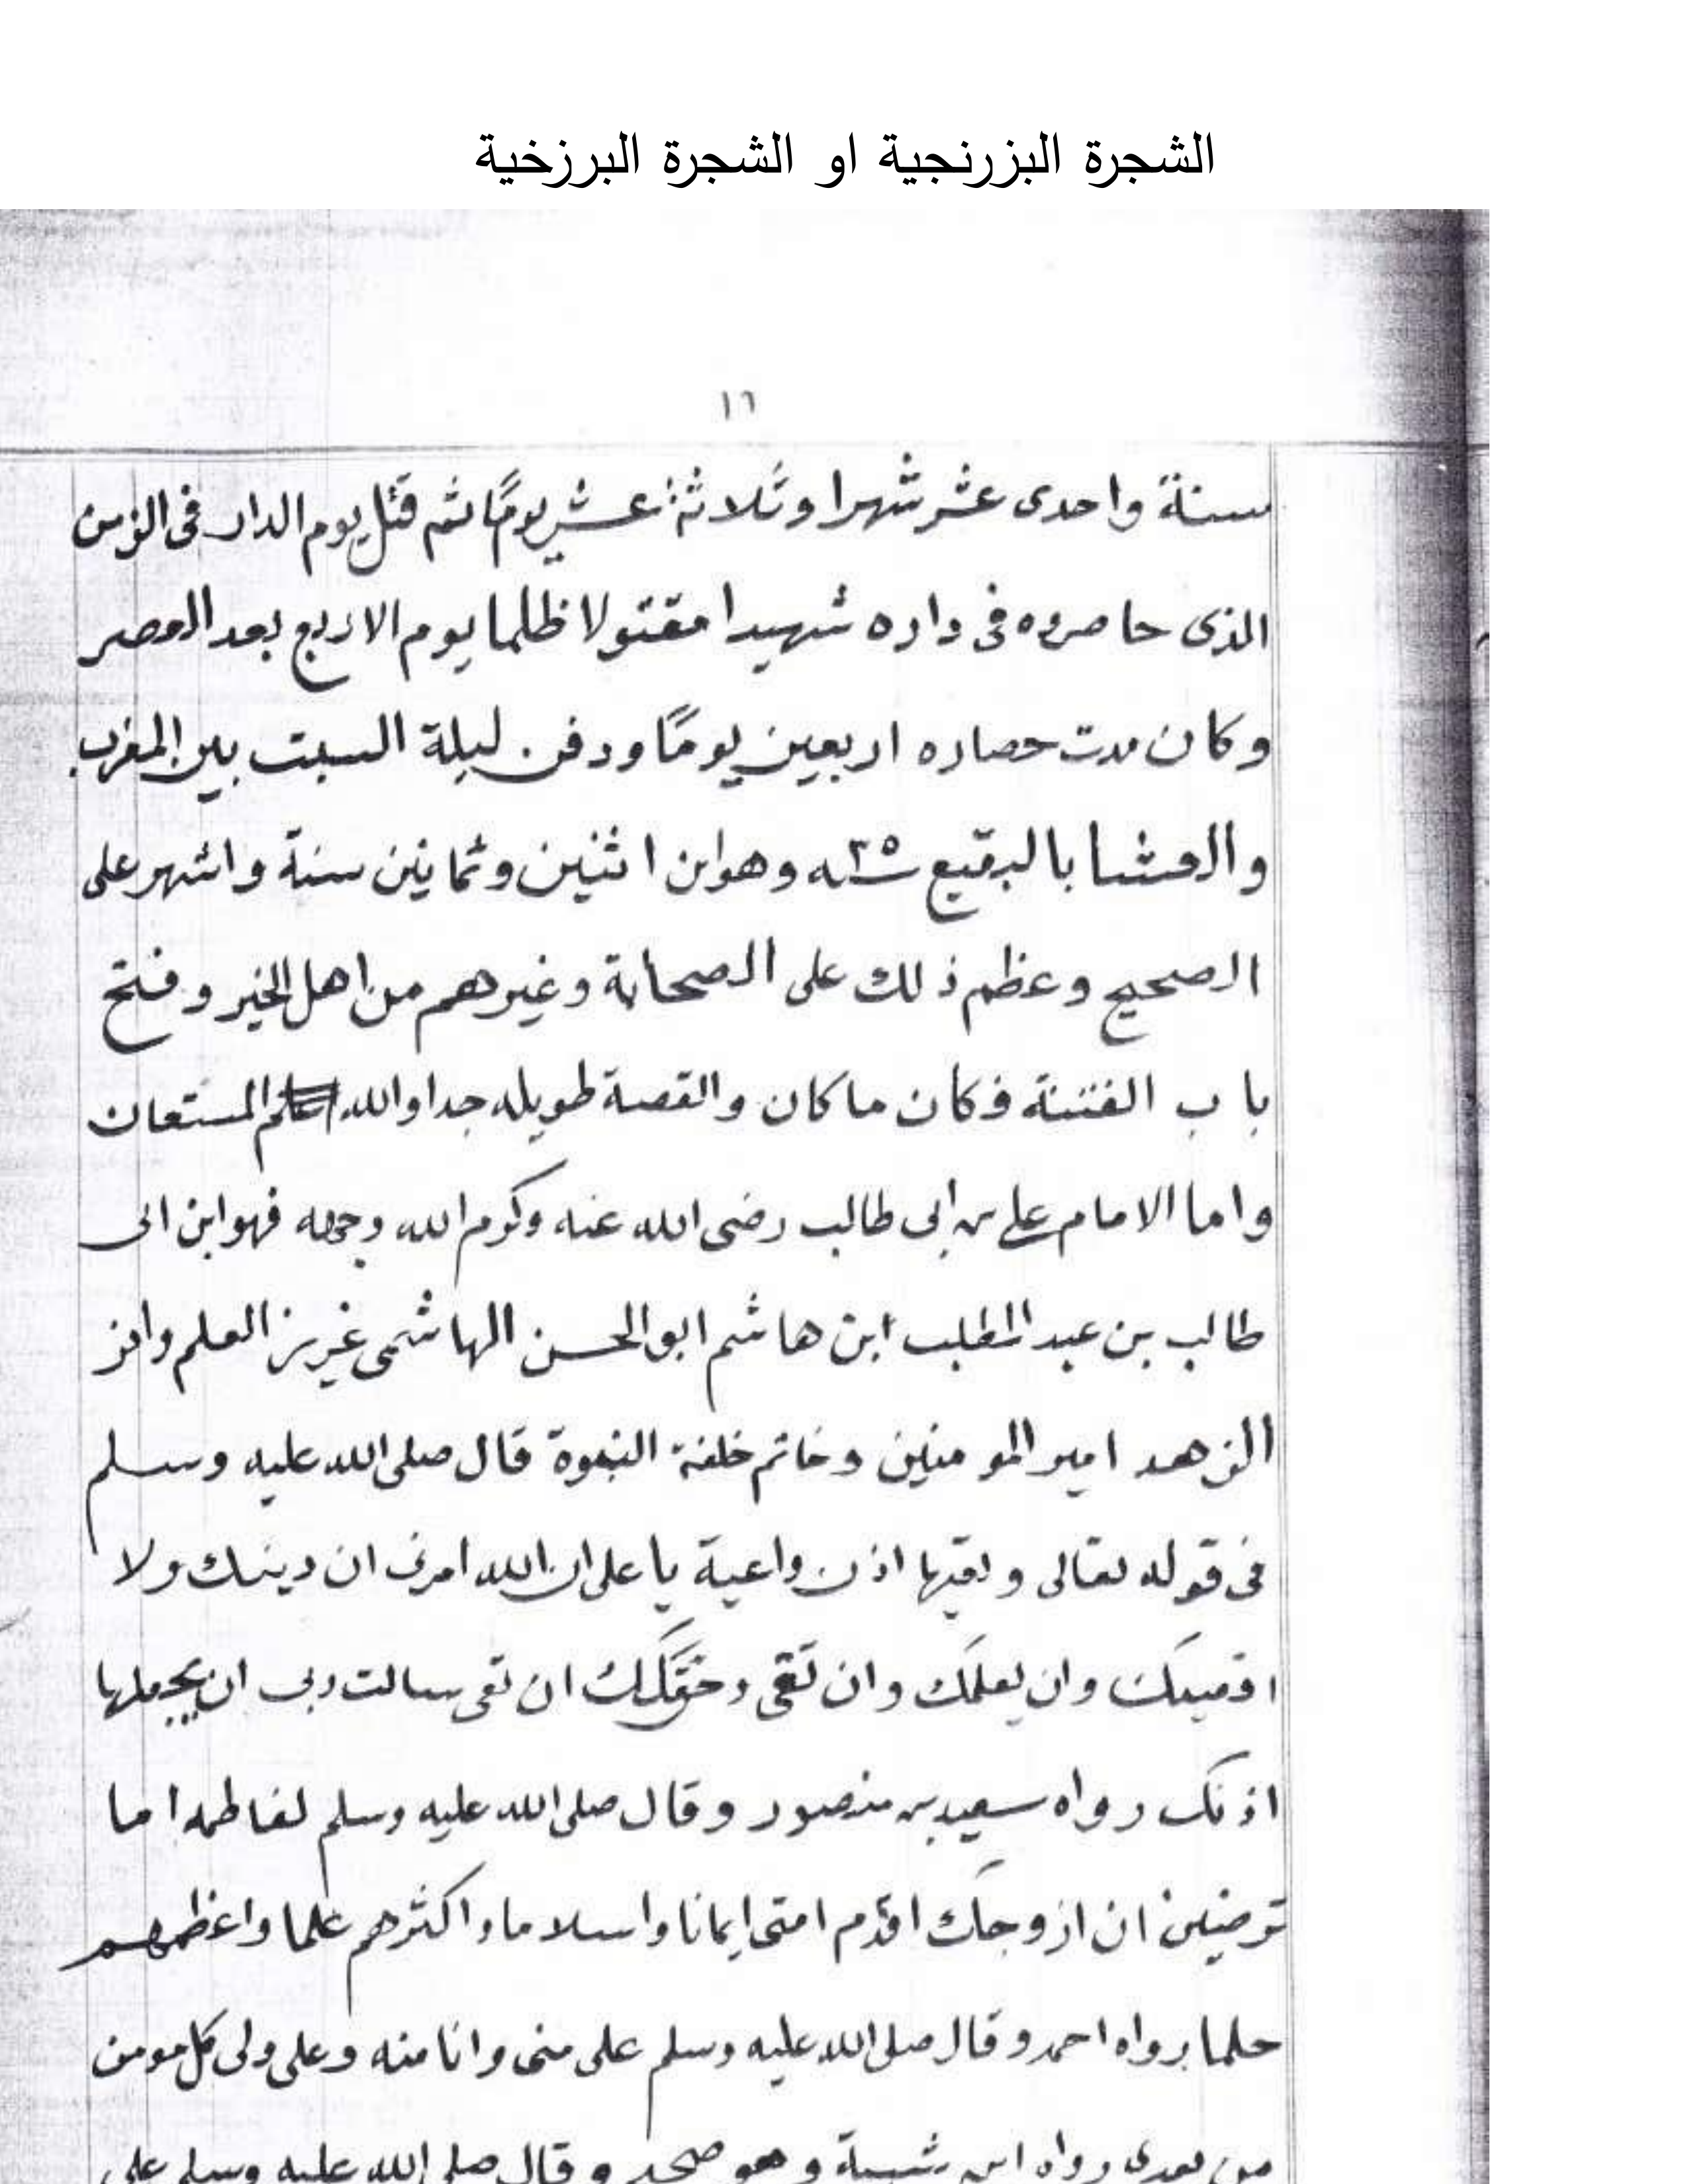 الشجرة البزرنجية او الشجرة البرزخية
١٦
سنة واحدى عشر شهرا وثلاثة عشر يومًا ثم قتل يوم الدار فى الزمن
الذى حاصروه فى داره شهيدا مقتولا ظلما يوم الاربع بعد العصر
وكان مدت حصاره اربعين يومًا ودفن ليلة السبت بين المغرب
والعشا بالبقيع ٣٥ سنه وهو ابن اثنين وثمانين سنة واشهر على
الصحيح وعظم ذلك على الصحابة وغيرهم من اهل الخير وفتح
باب الفتنة فكان ما كان والقصة طويله جدا والله المستعان
واما الامام على بن ابى طالب رضى الله عنه وكرم الله وجهه فهو ابن ابى
طالب بن عبد المطلب ابن هاشم ابو الحسن الهاشمى غريز العلم وافز
الزهد امير المومنين وخاتم خلفة النبوة قال صلى الله عليه وسلم
فى قوله تعالى وتعيها اذن واعية يا على ان الله امرنى ان دينك ولا
اقصيك وان يعلمك وان تعى وحق لك ان تعى رسالت ربى ان يجعلها
اذنك رواه سعيد بن منصور وقال صلى الله عليه وسلم لفاطمه اما
ترضين ان ازوجك اقدم امتى ايمانا واسلاما واكثرهم علما واعظمهم
حلما رواه احمد وقال صلى الله عليه وسلم على منى وانا منه وعلى ولى كل مومن
من بعدى رواه ابن شيبة وهو صحيح وقال صلى الله عليه وسلم على